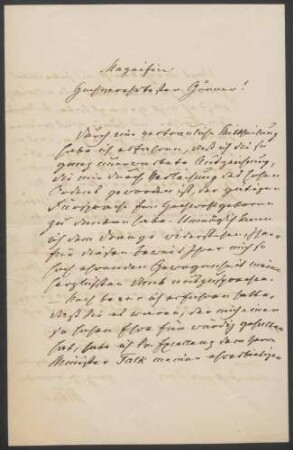 Magnificenz
Hochverehrtester Gönner!
Durch eine vertrauliche Mittheilung
habe ich erfahren, daß ich die so
ganz unerwartete Auszeichnung,
die mir durch Verleihung des hohen
Ordens geworden ist, der gütigen
Fürsprache Euer Hochwohlgeboren
zu danken habe. Unmöglich kann
ich dem Drange widerstehen, Ihnen
für diesen Beweis Ihrer mich so
hoch ehrenden Gewogenheit meinen
herzlichsten Dank auszusprechen.
Noch bevor ich erfahren hatte,
daß Sie es waren, der mich einer
so hohen Ehre für würdig gehalten
hat, habe ich Sr. Excellenz dem Herrn
Minister Falk meinen ehrerbietigen